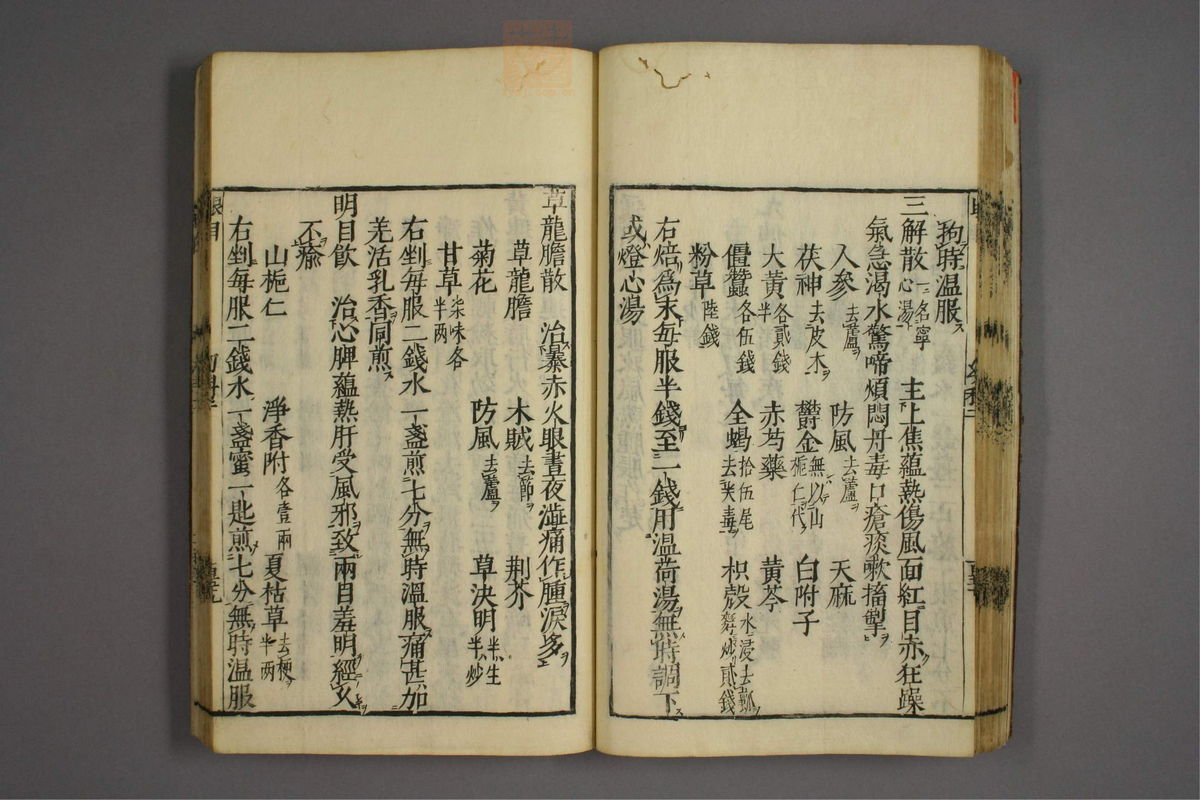 拘時温服
三解散 一名寧心湯 主上焦蘊熱傷風面紅目赤狂躁
氣急渴水驚啼煩悶丹毒口瘡痰嗽搐掣
人參 去蘆 防風 去蘆 天麻
茯神 去皮木 鬱金 無以山梔仁代 白附子
大黄 各貳錢半 赤芍藥 黄芩
僵蠶 各伍錢 全蝎 拾伍尾去尖毒 枳殻 水浸去瓤麩炒貳錢
粉草 陸錢
右焙爲末每服半錢至一錢用温荷湯無時調下
或燈心湯
草龍膽散 治暴赤火眼晝夜澁痛作腫淚多
草龍膽 木賊 去節 荆芥
菊花 防風 去蘆 草決明 半生半炒
甘草 柒味各半两
右剉每服二錢水一盞煎七分無時溫服痛甚加
羌活乳香同煎
明目飲 治心脾蘊熱肝受風邪致兩目羞明經久
不瘳
山梔仁 淨香附 各壹兩 夏枯草 去梗半两
右剉每服二錢水一盞蜜一匙煎七分無時温服
眼目